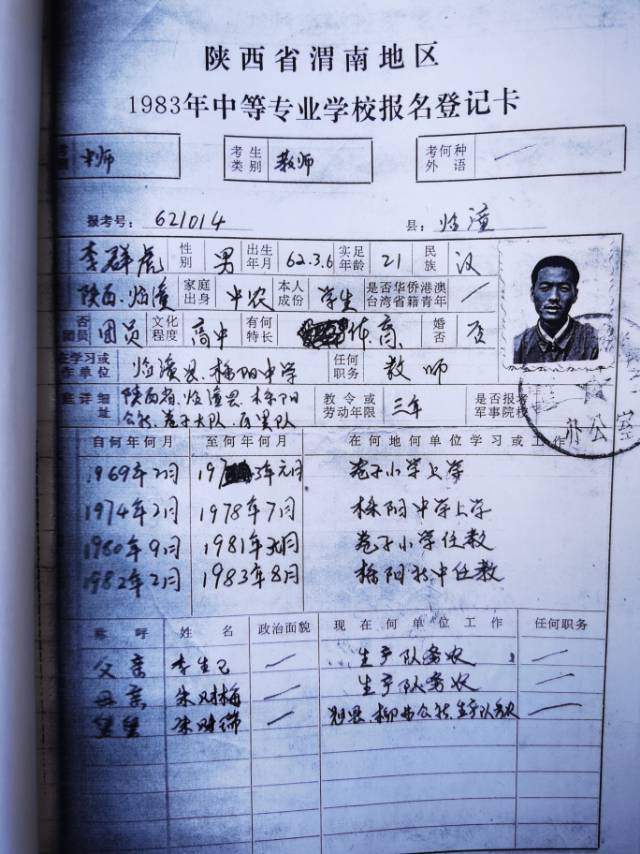 陕西省渭南地区
1983年中等专业学校报名登记卡
考生类别 教师 考何种外语 一
报考号: 621014 县: 临潼
李群虎 性别 男 出生年月 62.3.6 实足年龄 21 民族 汉
陕西.临潼 家庭出身 中农 本人成份 学生 是否华侨港澳台湾省籍青年 /
否团员 团员 文化程度 高中 有何特长 体育 婚否 否
在学习或作单位 临潼县.栎阳中学 任何职务 教师
庭详细址 陕西省.临潼县.栎阳公社. 大队. 队 教令或劳动年限 三年 是否报考军事院校
办公室
自何年何月 至何年何月 在何地何单位学习或工作
1969年2月 197 3年元月 小学上学
1974年2月 1978年7月 栎阳中学上学
1980年9月 1981年 月 小学任教
1982年2月 1983年8月 栎阳 中任教
称呼 姓名 政治面貌 现在何单位工作 任何职务
父亲 李生 一 生产队务农 一
母亲 朱 梅 一 生产队务农 一
朱 瑞 一 公社.生产队务农 一